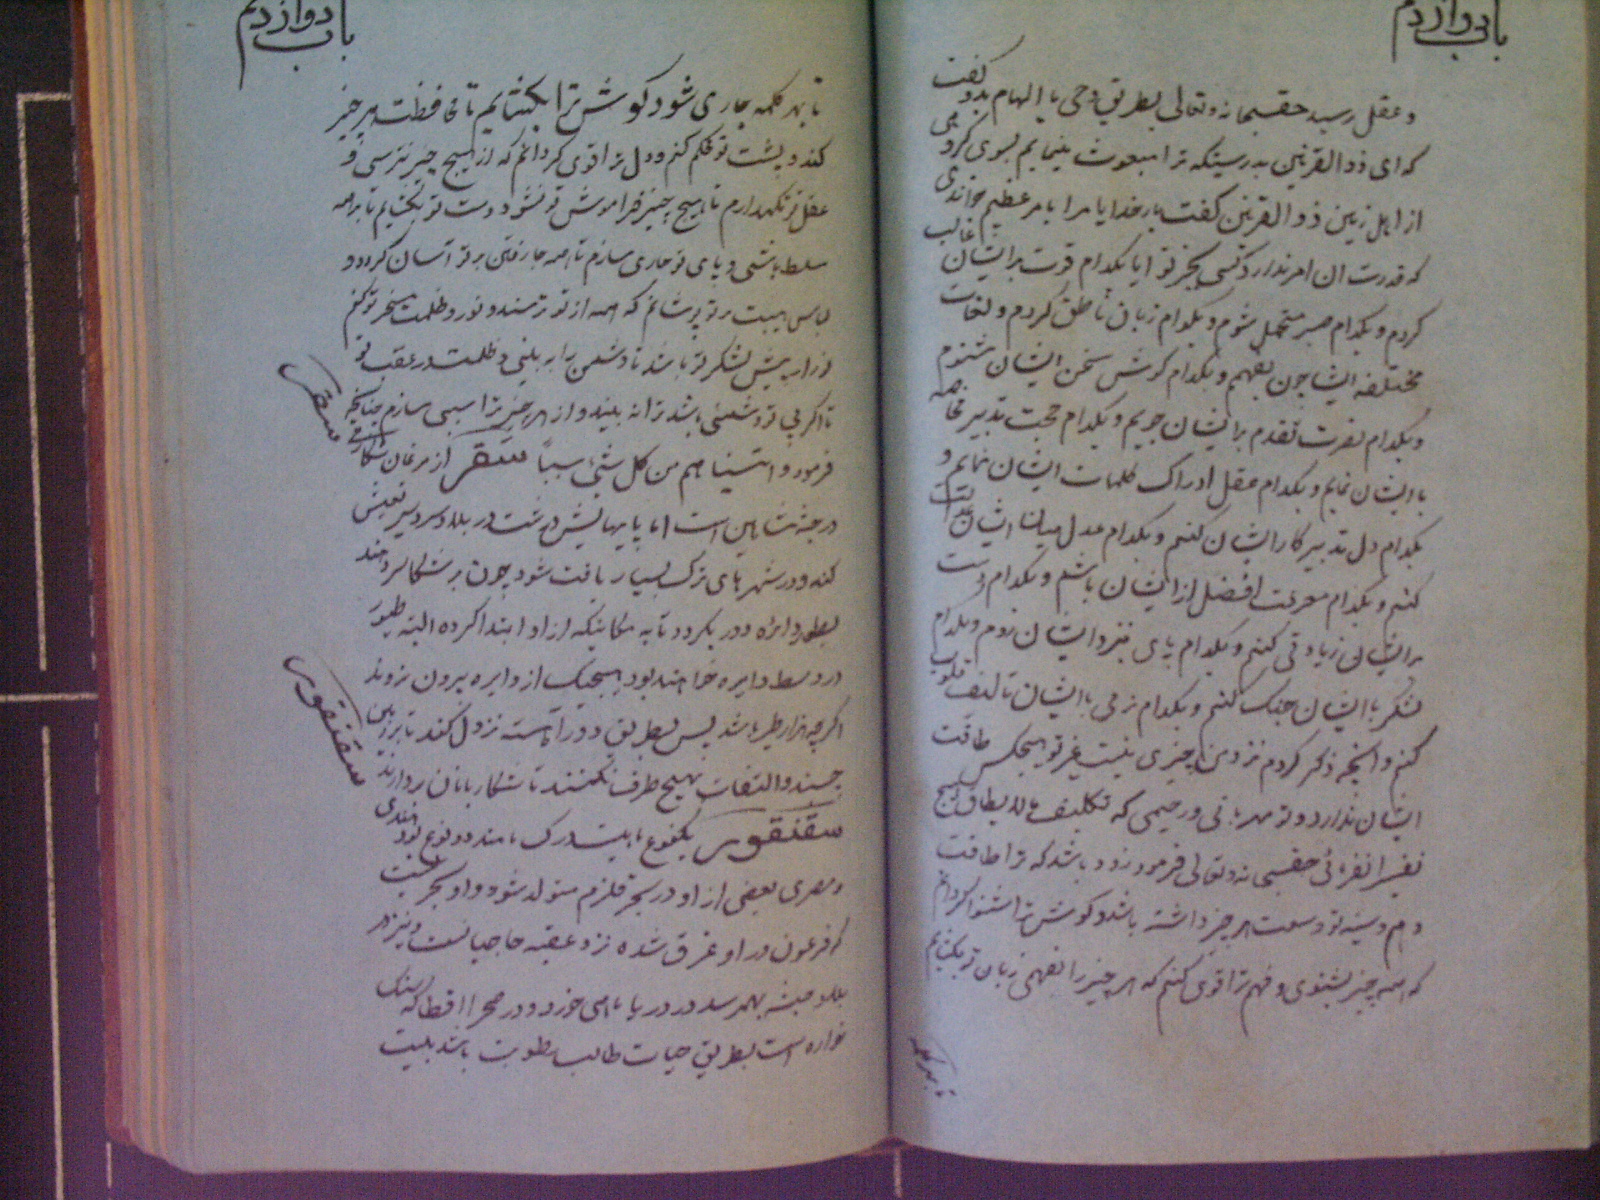 باب دوازدهم
و عقل رسید حقسبحانه و تعالی بطریق وحی یا الهام بدو گفت
که ای ذوالقرنین بدرستیکه ترا مبعوث مینمایم بسوی گروهی
از اهل زمین ذوالقرنین گفت بارخدایا مرا بامر عظیم خواندی
که قدرت آن امر ندارد کسی بجز تو آیا بکدام قوت بر ایشان غالب
گردم و بکدام صبر متحمل شوم و بکدام زبان ناطق گردم و لغات
مختلفه ایشان چون بفهم و بکدام گوش سخن ایشان شنوم
و بکدام نصرت تقدم بر ایشان جویم و بکدام حجت تدبیر مخاصمه
با ایشان نمایم و بکدام عقل ادراک کلمات ایشان نمایم و
بکدام دل تدبیر کار ایشان کنم و بکدام عدل میان ایشان عدالت
کنم و بکدام معرفت افضل از ایشان باشم و بکدام دست
بر ایشان زیادتی کنم و بکدام پای نزد ایشان روم و بکدام
لشکر با ایشان جنگ کنم و بکدام نرمی با ایشان تالیف قلوب
کنم و آنچه ذکر کردم نزد من چیزی نیست غیر تو هیچکس طاقت
ایشان ندارد و تو مهربانی و رحیمی که تکلیف ما لا یطاق هیچ
نفسی را نفرمائی حقسبحانه و تعالی فرمود زود باشد که ترا طاقت
دهم و سینه تو وسعت هر چیز داشته باشد و گوش ترا شنوا گردانم
که همه چیز بشنوی و فهم ترا قوی کنم که هر چیز را بفهمی زبان تو بگشایم
تا بهر کلمه
باب دوازدهم
تا بهر کلمه جاری شود گوش ترا بگشایم تا محافظت هر چیز
کند و پشت تو محکم کنم و دل ترا قوی گردانم که از هیچ چیز نترسی و
عقل تو نگهدارم تا هیچ چیز فراموش تو نشود دست تو بگشایم تا بر همه
مسلط باشی و پای تو جاری سازم تا همه جا رفتن بر تو آسان گردد و
لباس هیبت بر تو پوشانم که همه از تو ترسند و نور و ظلمت مسخر تو کنم
نور از پیش لشکر تو باشد تا دشمن را به بینی و ظلمت در عقب تو
تا اگر پی تو دشمنی باشد ترا نه بیند و از هر چیز ترا سببی سازم چنانکه
فرمود و آتیناهم من کل شیء سبباً سنقر از مرغان شکاری
سنقر
در جثه شاهین است اما پایهایش درشت در بلاد سردسیر تعیش
کند و در شهرهای ترک بسیار یافت شود چون بر شکار سر دهند
بطور دایره دور بگردد تا به مکانیکه از او ابتدا کرده البته طیور
در وسط دایره خواهند بود هیچیک از دایره بیرون نروند
اگر چه هزار طیر باشد پس بطریق دور آهسته نزول کند تا بر زمین
چسبند و التفات بهیچ طرف نکنند تا شکاربانان بردارند
سقنقور یکنوع باشد دو نوع بود هندی
سقنقور
و مصری بعضی از او در بحر قلزم متولد شود و او بحریست
که فرعون در او غرق شده نزد عقبه حاجیانست و نیز در
بلاد حبشه بهمرسد در دریا ماهی خورد و در صحرا
است بطریق حیات طالب رطوبت باشد بیست